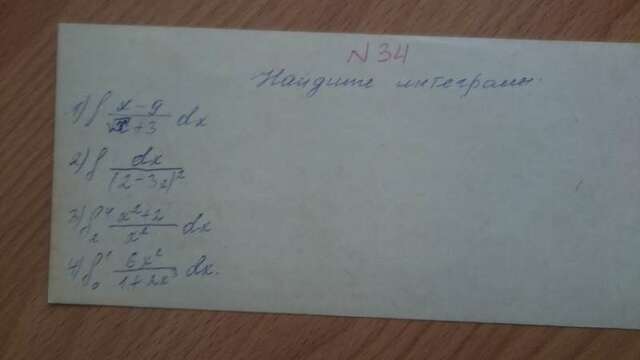 N 34
Найдите интегралы:
1) ∫ x-9/√x+3 dx
2) ∫ dx/(2-3x)²
3) ∫₁⁴ x²+2/x² dx
4) ∫₀¹ 6x²/1+2x³ dx.